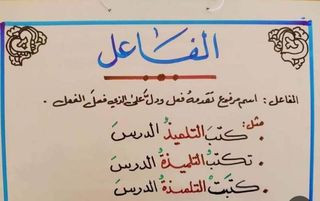 الفاعل
الفاعل : اسم مرفوع تقدمه فعل ودل على الذي فعل الفعل .
مثل :
• كتبَ التلميذُ الدرسَ
• تكتبُ التلميذةُ الدرسَ
• كتبَت التلمذة الدرسَ